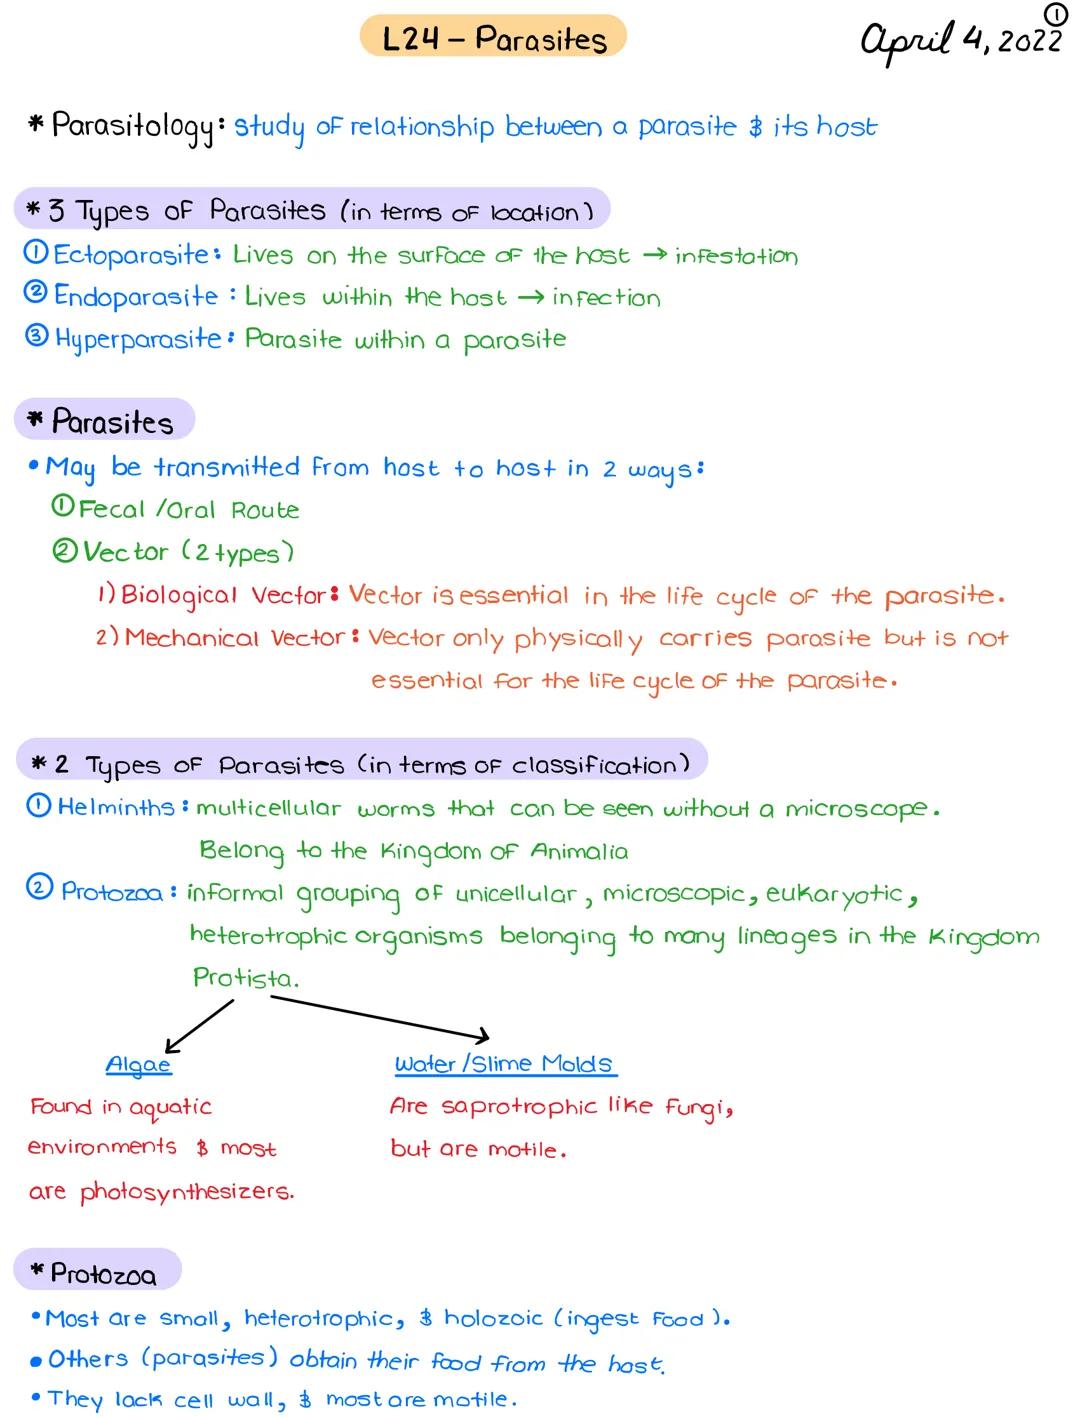 ①
L24 – Parasites
April 4, 2022
* Parasitology: study of relationship between a parasite & its host
* 3 Types of Parasites (in terms of location)
① Ectoparasite: Lives on the surface of the host → infestation
② Endoparasite: Lives within the host → infection
③ Hyperparasite: Parasite within a parasite
* Parasites
• May be transmitted from host to host in 2 ways:
① Fecal/Oral Route
② Vector (2 types)
1) Biological Vector: Vector is essential in the life cycle of the parasite.
2) Mechanical Vector: Vector only physically carries parasite but is not
essential for the life cycle of the parasite.
* 2 Types of Parasites (in terms of classification)
① Helminths: multicellular worms that can be seen without a microscope.
Belong to the Kingdom of Animalia
② Protozoa: informal grouping of unicellular, microscopic, eukaryotic,
heterotrophic organisms belonging to many lineages in the Kingdom
Protista.
Algae
Found in aquatic
environments & most
are photosynthesizers.
Water/Slime Molds
Are saprotrophic like Fungi,
but are motile.
* Protozoa
• Most are small, heterotrophic, & holozoic (ingest food).
• Others (parasites) obtain their food from the host.
• They lack cell wall, & most are motile.